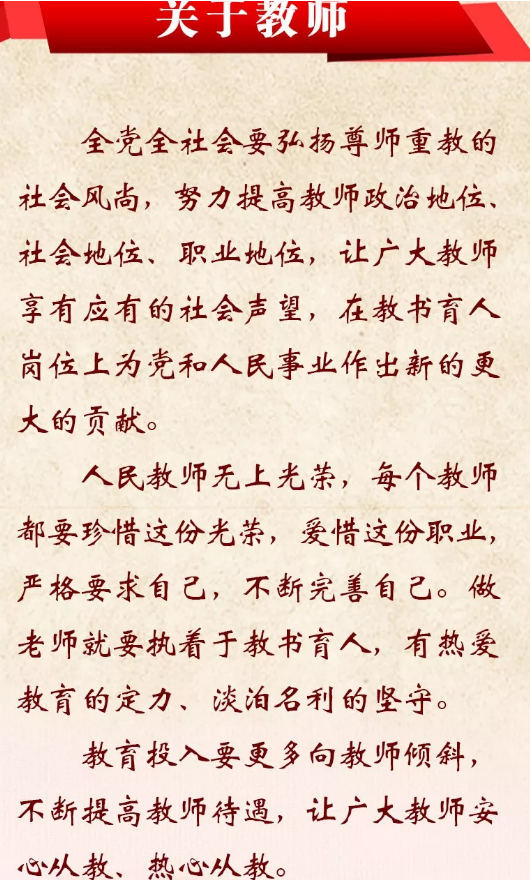 关于教师
全党全社会要弘扬尊师重教的
社会风尚，努力提高教师政治地位、
社会地位、职业地位，让广大教师
享有应有的社会声望，在教书育人
岗位上为党和人民事业作出新的更
大的贡献。
人民教师无上光荣，每个教师
都要珍惜这份光荣，爱惜这份职业，
严格要求自己，不断完善自己。做
老师就要执着于教书育人，有热爱
教育的定力、淡泊名利的坚守。
教育投入要更多向教师倾斜，
不断提高教师待遇，让广大教师安
心从教、热心从教。